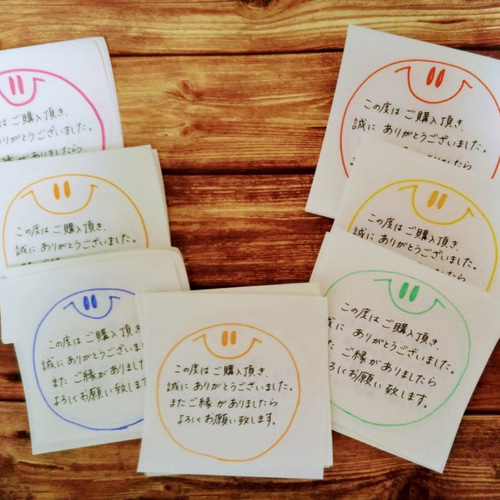 は ご購入頂き、
ありがとうございました。
縁が ありましたら
この度は ご購入頂き、
誠に ありがとうございました。
ましたら
この度は ご購入頂き、
誠に ありがとうございました。
この度は ご購入頂き、
誠に ありがとうございました。
ありましたら
この度は ご購入頂き
誠に ありがとうございまし
また ご縁が ありまし
よろしくお願い致します
この度は ご購入頂き、
に ありがとうございました。
ご縁が ありましたら
しくお願い致します。
この度は ご購入頂き、
誠に ありがとうございました。
また ご縁が ありましたら
よろしくお願い致します。